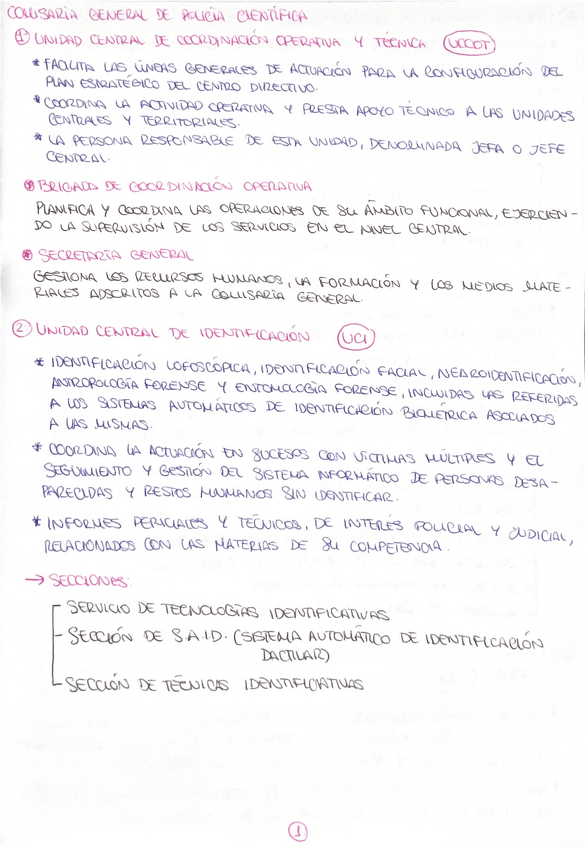 COMISARÍA GENERAL DE POLICÍA CIENTÍFICA
1) UNIDAD CENTRAL DE COORDINACIÓN OPERATIVA Y TÉCNICA (UCCOT)
* FACILITA LAS LÍNEAS GENERALES DE ACTUACIÓN PARA LA CONFIGURACIÓN DEL
PLAN ESTRATÉGICO DEL CENTRO DIRECTIVO.
* COORDINA LA ACTIVIDAD OPERATIVA Y PRESTA APOYO TÉCNICO A LAS UNIDADES
CENTRALES Y TERRITORIALES.
* LA PERSONA RESPONSABLE DE ESTA UNIDAD, DENOMINADA JEFA O JEFE
CENTRAL.
* BRIGADA DE COORDINACIÓN OPERATIVA
PLANIFICA Y COORDINA LAS OPERACIONES DE SU ÁMBITO FUNCIONAL, EJERCIEN-
DO LA SUPERVISIÓN DE LOS SERVICIOS EN EL NIVEL CENTRAL.
* SECRETARÍA GENERAL
GESTIONA LOS RECURSOS HUMANOS, LA FORMACIÓN Y LOS MEDIOS MATE-
RIALES ADSCRITOS A LA COMISARÍA GENERAL.
2) UNIDAD CENTRAL DE IDENTIFICACIÓN (UCI)
* IDENTIFICACIÓN LOFOSCÓPICA, IDENTIFICACIÓN FACIAL, NECROIDENTIFICACIÓN,
ANTROPOLOGÍA FORENSE Y ENTOMOLOGÍA FORENSE, INCLUIDAS LAS REFERIDAS
A LOS SISTEMAS AUTOMÁTICOS DE IDENTIFICACIÓN BIOMÉTRICA ASOCIADOS
A LAS MISMAS.
* COORDINA LA ACTUACIÓN EN SUCESOS CON VÍCTIMAS MÚLTIPLES Y EL
SEGUIMIENTO Y GESTIÓN DEL SISTEMA INFORMÁTICO DE PERSONAS DESA-
PARECIDAS Y RESTOS HUMANOS SIN IDENTIFICAR.
* INFORMES PERICIALES Y TÉCNICOS, DE INTERÉS POLICIAL Y JUDICIAL,
RELACIONADOS CON LAS MATERIAS DE SU COMPETENCIA.
→ SECCIONES:
SERVICIO DE TECNOLOGÍAS IDENTIFICATIVAS
- SECCIÓN DE S.A.I.D. (SISTEMA AUTOMÁTICO DE IDENTIFICACIÓN
DACTILAR)
SECCIÓN DE TÉCNICAS IDENTIFICATIVAS
1